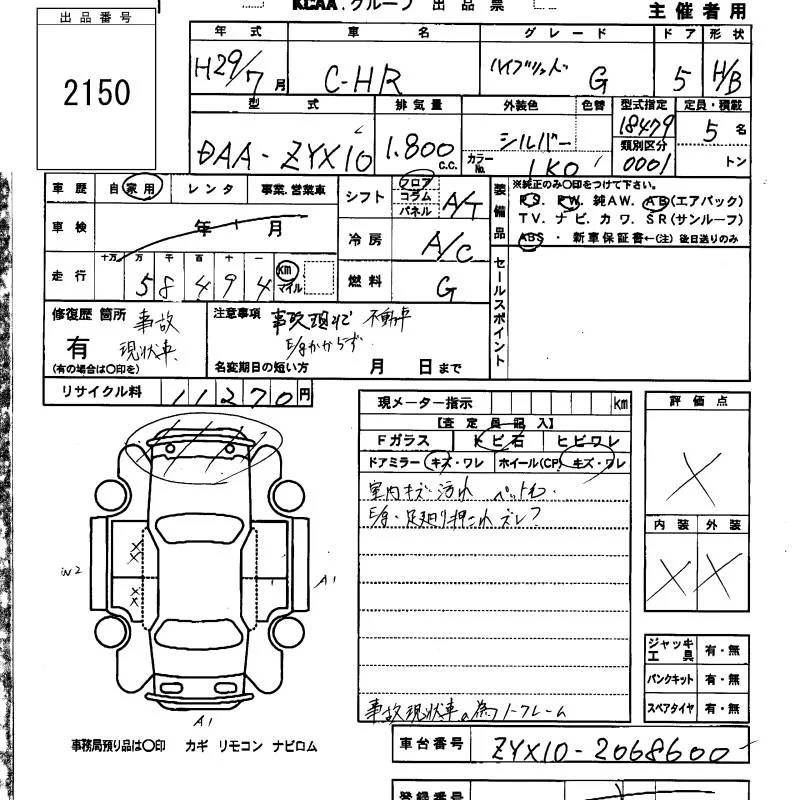 KCAA.グループ 出品票
主催者用
出品番号
2150
年式 車名 グレード ドア 形状
H29/7月 C-HR ハイブリッド G 5 H/B
型式 排気量 外装色 色替 型式指定 定員・積載
DAA-ZYX10 1.800 C.C. シルバー 18479 5名
カラーNo. 1K0 類別区分 0001 トン
車歴 自家用 レンタ 事業.営業車
シフト フロア コラム パネル A/T
装備品 ※純正のみ○印をつけて下さい。
P.S. P.W. 純AW. AB(エアバック)
TV. ナビ. カワ. SR(サンルーフ)
ABS ・ 新車保証書←(注)後日送りのみ
車検 年 月
冷房 A/C
走行 十万 万 千 百 十 一 km マイル
58494
燃料 G
セールスポイント
修復歴 箇所 事故
有 現状車
(有の場合は○印を)
注意事項 事故現状 不動車
E/gかからず
名変期日の短い方 月 日まで
リサイクル料 11270円
現メーター指示 km
【査定員記入】
Fガラス トビ石 ヒビワレ
ドアミラー キズ・ワレ ホイール(CP) キズ・ワレ
室内キズ・汚れ
E/g・足廻り押され ズレ?
事故現状車の為ノークレーム
評価点
X
内装 外装
X X
in2
A1
A1
ジャッキ工具 有・無
パンクキット 有・無
スペアタイヤ 有・無
事務局預り品は○印 カギ リモコン ナビロム
車台番号 ZYX10-2068600
登録番号